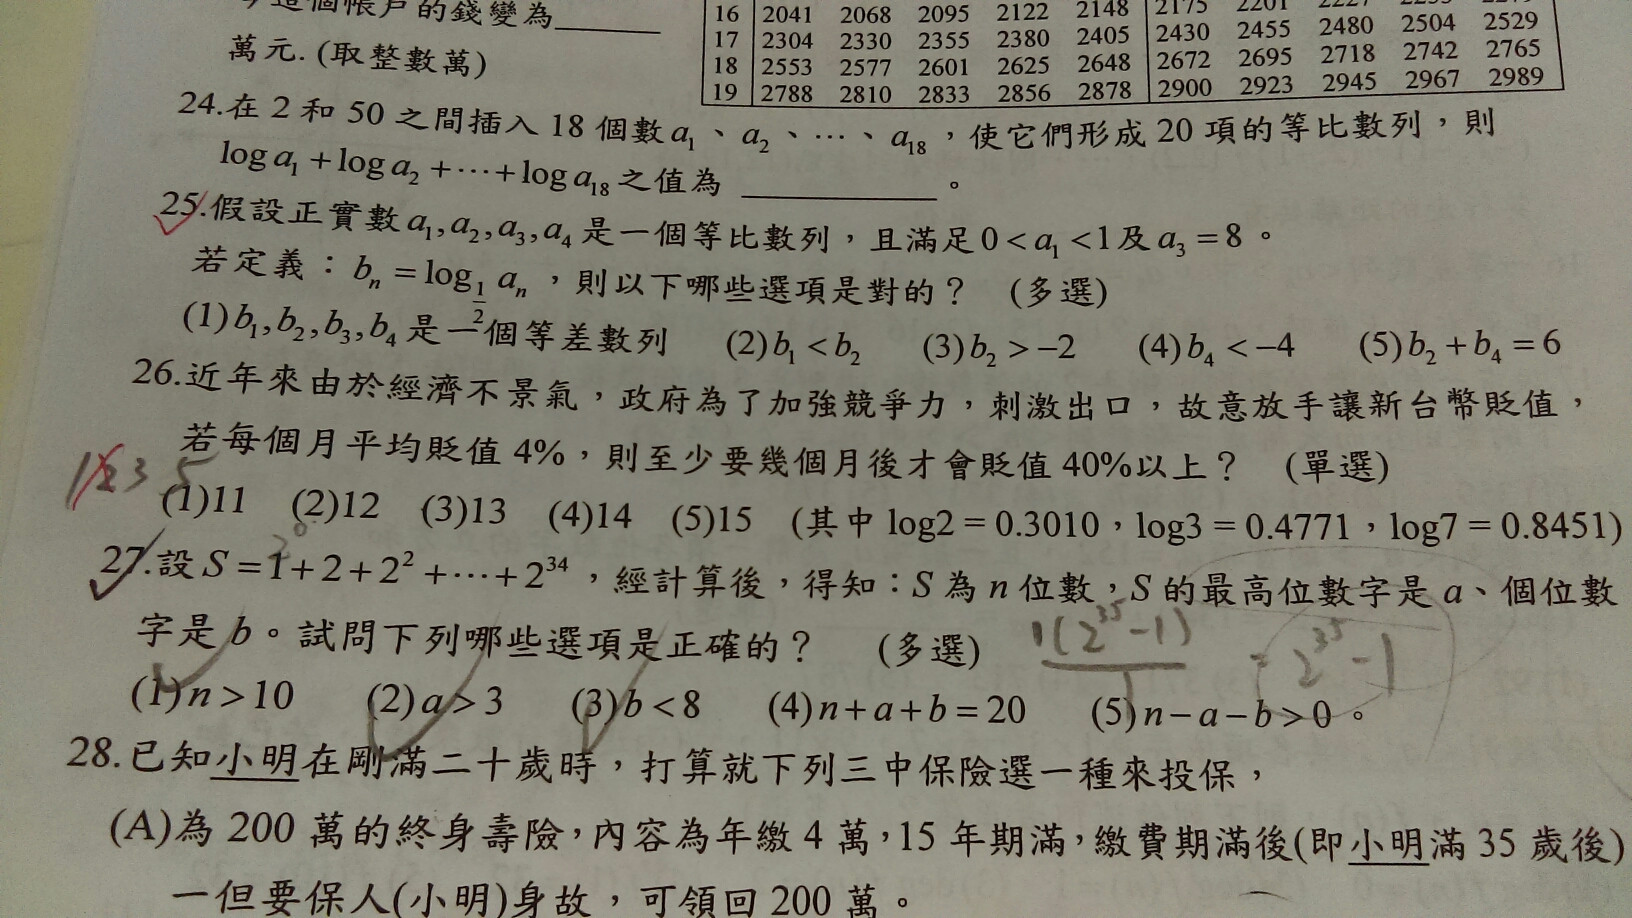 這個帳戶的錢變為______
萬元. (取整數萬)
16 2041 2068 2095 2122 2148 2175 2201 2227
17 2304 2330 2355 2380 2405 2430 2455 2480 2504 2529
18 2553 2577 2601 2625 2648 2672 2695 2718 2742 2765
19 2788 2810 2833 2856 2878 2900 2923 2945 2967 2989
24.在 2 和 50 之間插入 18 個數 a₁、a₂、⋯、a₁₈，使它們形成 20 項的等比數列，則
log a₁ + log a₂ + ⋯ + log a₁₈ 之值為 ________。
25.假設正實數 a₁, a₂, a₃, a₄ 是一個等比數列，且滿足 0 < a₁ < 1 及 a₃ = 8。
若定義：bₙ = log_{1/2} aₙ，則以下哪些選項是對的？ (多選)
(1) b₁, b₂, b₃, b₄ 是一個等差數列 (2) b₁ < b₂ (3) b₂ > −2 (4) b₄ < −4 (5) b₂ + b₄ = 6
26.近年來由於經濟不景氣，政府為了加強競爭力，刺激出口，故意放手讓新台幣貶值，
若每個月平均貶值 4%，則至少要幾個月後才會貶值 40%以上？ (單選)
(1)11 (2)12 (3)13 (4)14 (5)15 (其中 log2 = 0.3010，log3 = 0.4771，log7 = 0.8451)
1 2 3 5
2⁰
27.設 S = 1 + 2 + 2² + ⋯ + 2³⁴，經計算後，得知：S 為 n 位數，S 的最高位數字是 a、個位數
字是 b。試問下列哪些選項是正確的？ (多選)
1(2³⁵−1)/1 = 2³⁵−1
(1) n > 10 (2) a > 3 (3) b < 8 (4) n + a + b = 20 (5) n − a − b > 0。
28.已知小明在剛滿二十歲時，打算就下列三中保險選一種來投保，
(A)為 200 萬的終身壽險，內容為年繳 4 萬，15 年期滿，繳費期滿後(即小明滿 35 歲後)
一但要保人(小明)身故，可領回 200 萬。